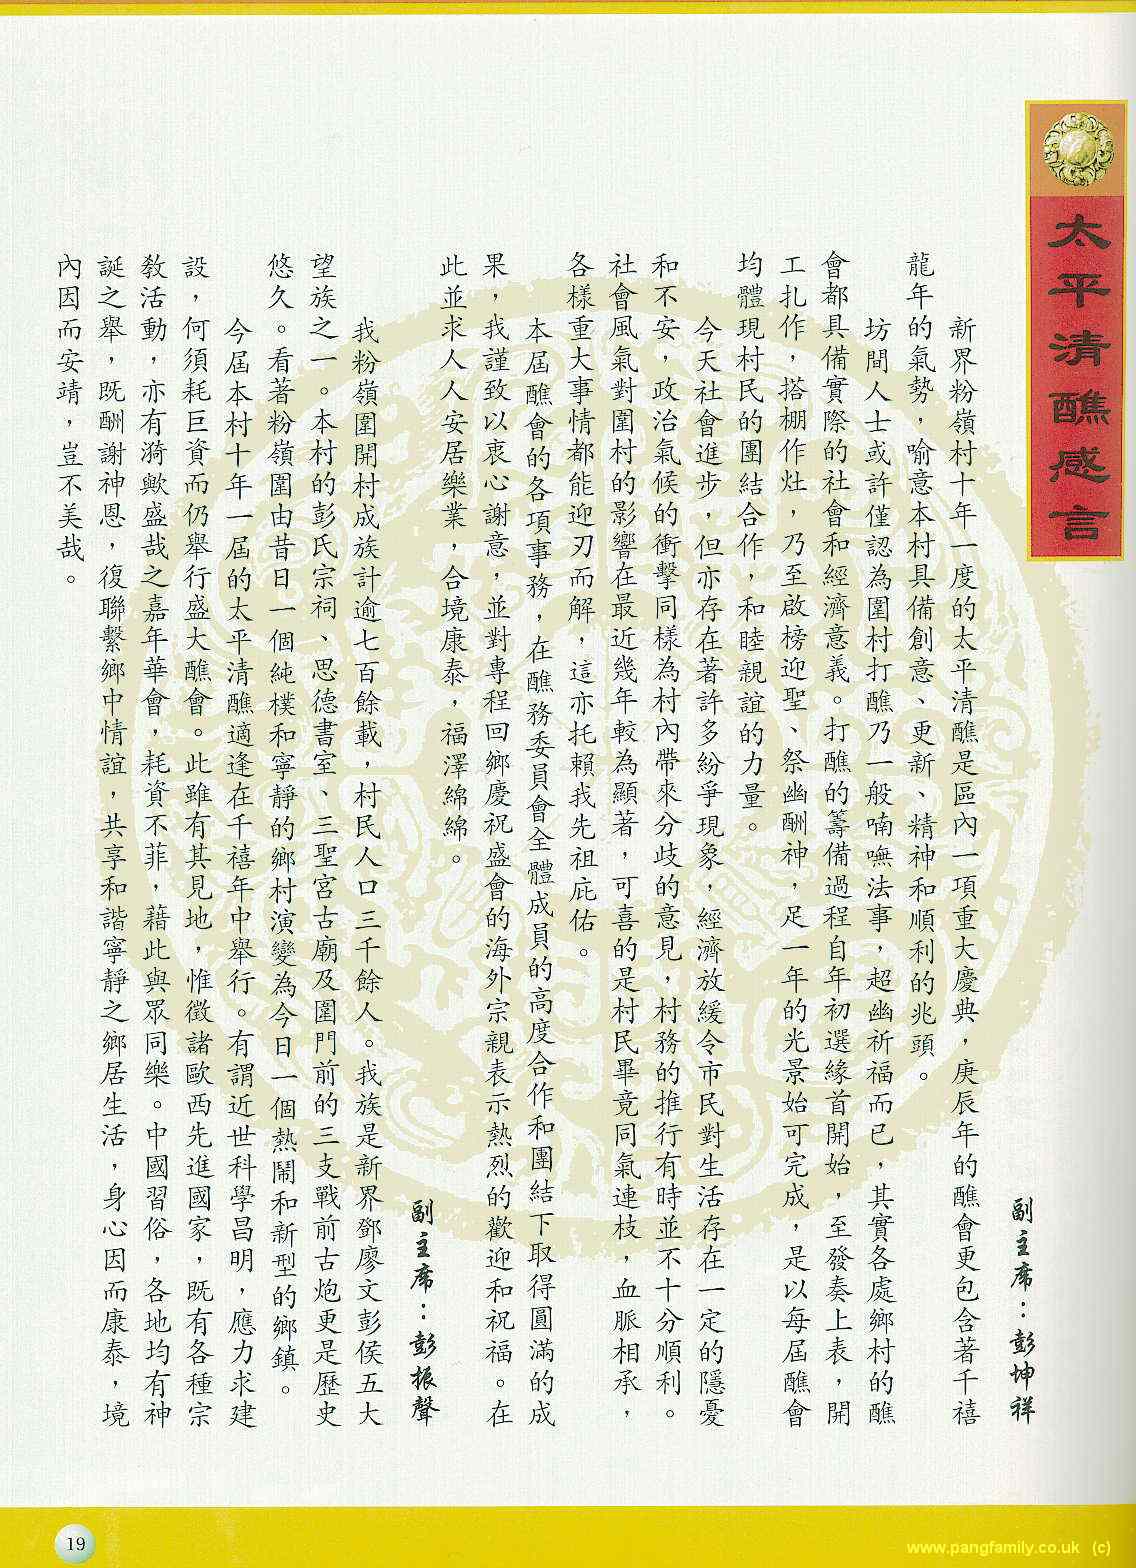 太平清醮感言
副主席：彭坤祥
新界粉嶺村十年一度的太平清醮是區內一項重大慶典，庚辰年的醮會更包含著千禧
龍年的氣勢，喻意本村具備創意、更新、精神和順利的兆頭。
坊間人士或許僅認為圍村打醮乃一般喃嘸法事，超幽祈福而已，其實各處鄉村的醮
會都具備實際的社會和經濟意義。打醮的籌備過程自年初選緣首開始，至發奏上表，開
工扎作，搭棚作灶，乃至啟榜迎聖、祭幽酬神，足一年的光景始可完成，是以每屆醮會
均體現村民的團結合作，和睦親誼的力量。
今天社會進步，但亦存在著許多紛爭現象，經濟放緩令市民對生活存在一定的隱憂
和不安，政治氣候的衝擊同樣為村內帶來分歧的意見，村務的推行有時並不十分順利。
社會風氣對圍村的影響在最近幾年較為顯著，可喜的是村民畢竟同氣連枝，血脈相承，
各樣重大事情都能迎刃而解，這亦托賴我先祖庇佑。
本屆醮會的各項事務，在醮務委員會全體成員的高度合作和團結下取得圓滿的成
果，我謹致以衷心謝意，並對專程回鄉慶祝盛會的海外宗親表示熱烈的歡迎和祝福。在
此並求人人安居樂業，合境康泰，福澤綿綿。
副主席：彭振聲
我粉嶺圍開村成族計逾七百餘載，村民人口三千餘人。我族是新界鄧廖文彭侯五大
望族之一。本村的彭氏宗祠、思德書室、三聖宮古廟及圍門前的三支戰前古炮更是歷史
悠久。看著粉嶺圍由昔日一個純樸和寧靜的鄉村演變為今日一個熱鬧和新型的鄉鎮。
今屆本村十年一屆的太平清醮適逢在千禧年中舉行。有謂近世科學昌明，應力求建
設，何須耗巨資而仍舉行盛大醮會。此雖有其見地，惟徵諸歐西先進國家，既有各種宗
教活動，亦有漪歟盛哉之嘉年華會，耗資不菲，藉此與眾同樂。中國習俗，各地均有神
誕之舉，既酬謝神恩，復聯繫鄉中情誼，共享和諧寧靜之鄉居生活，身心因而康泰，境
內因而安靖，豈不美哉。
19
www.pangfamily.co.uk (c)